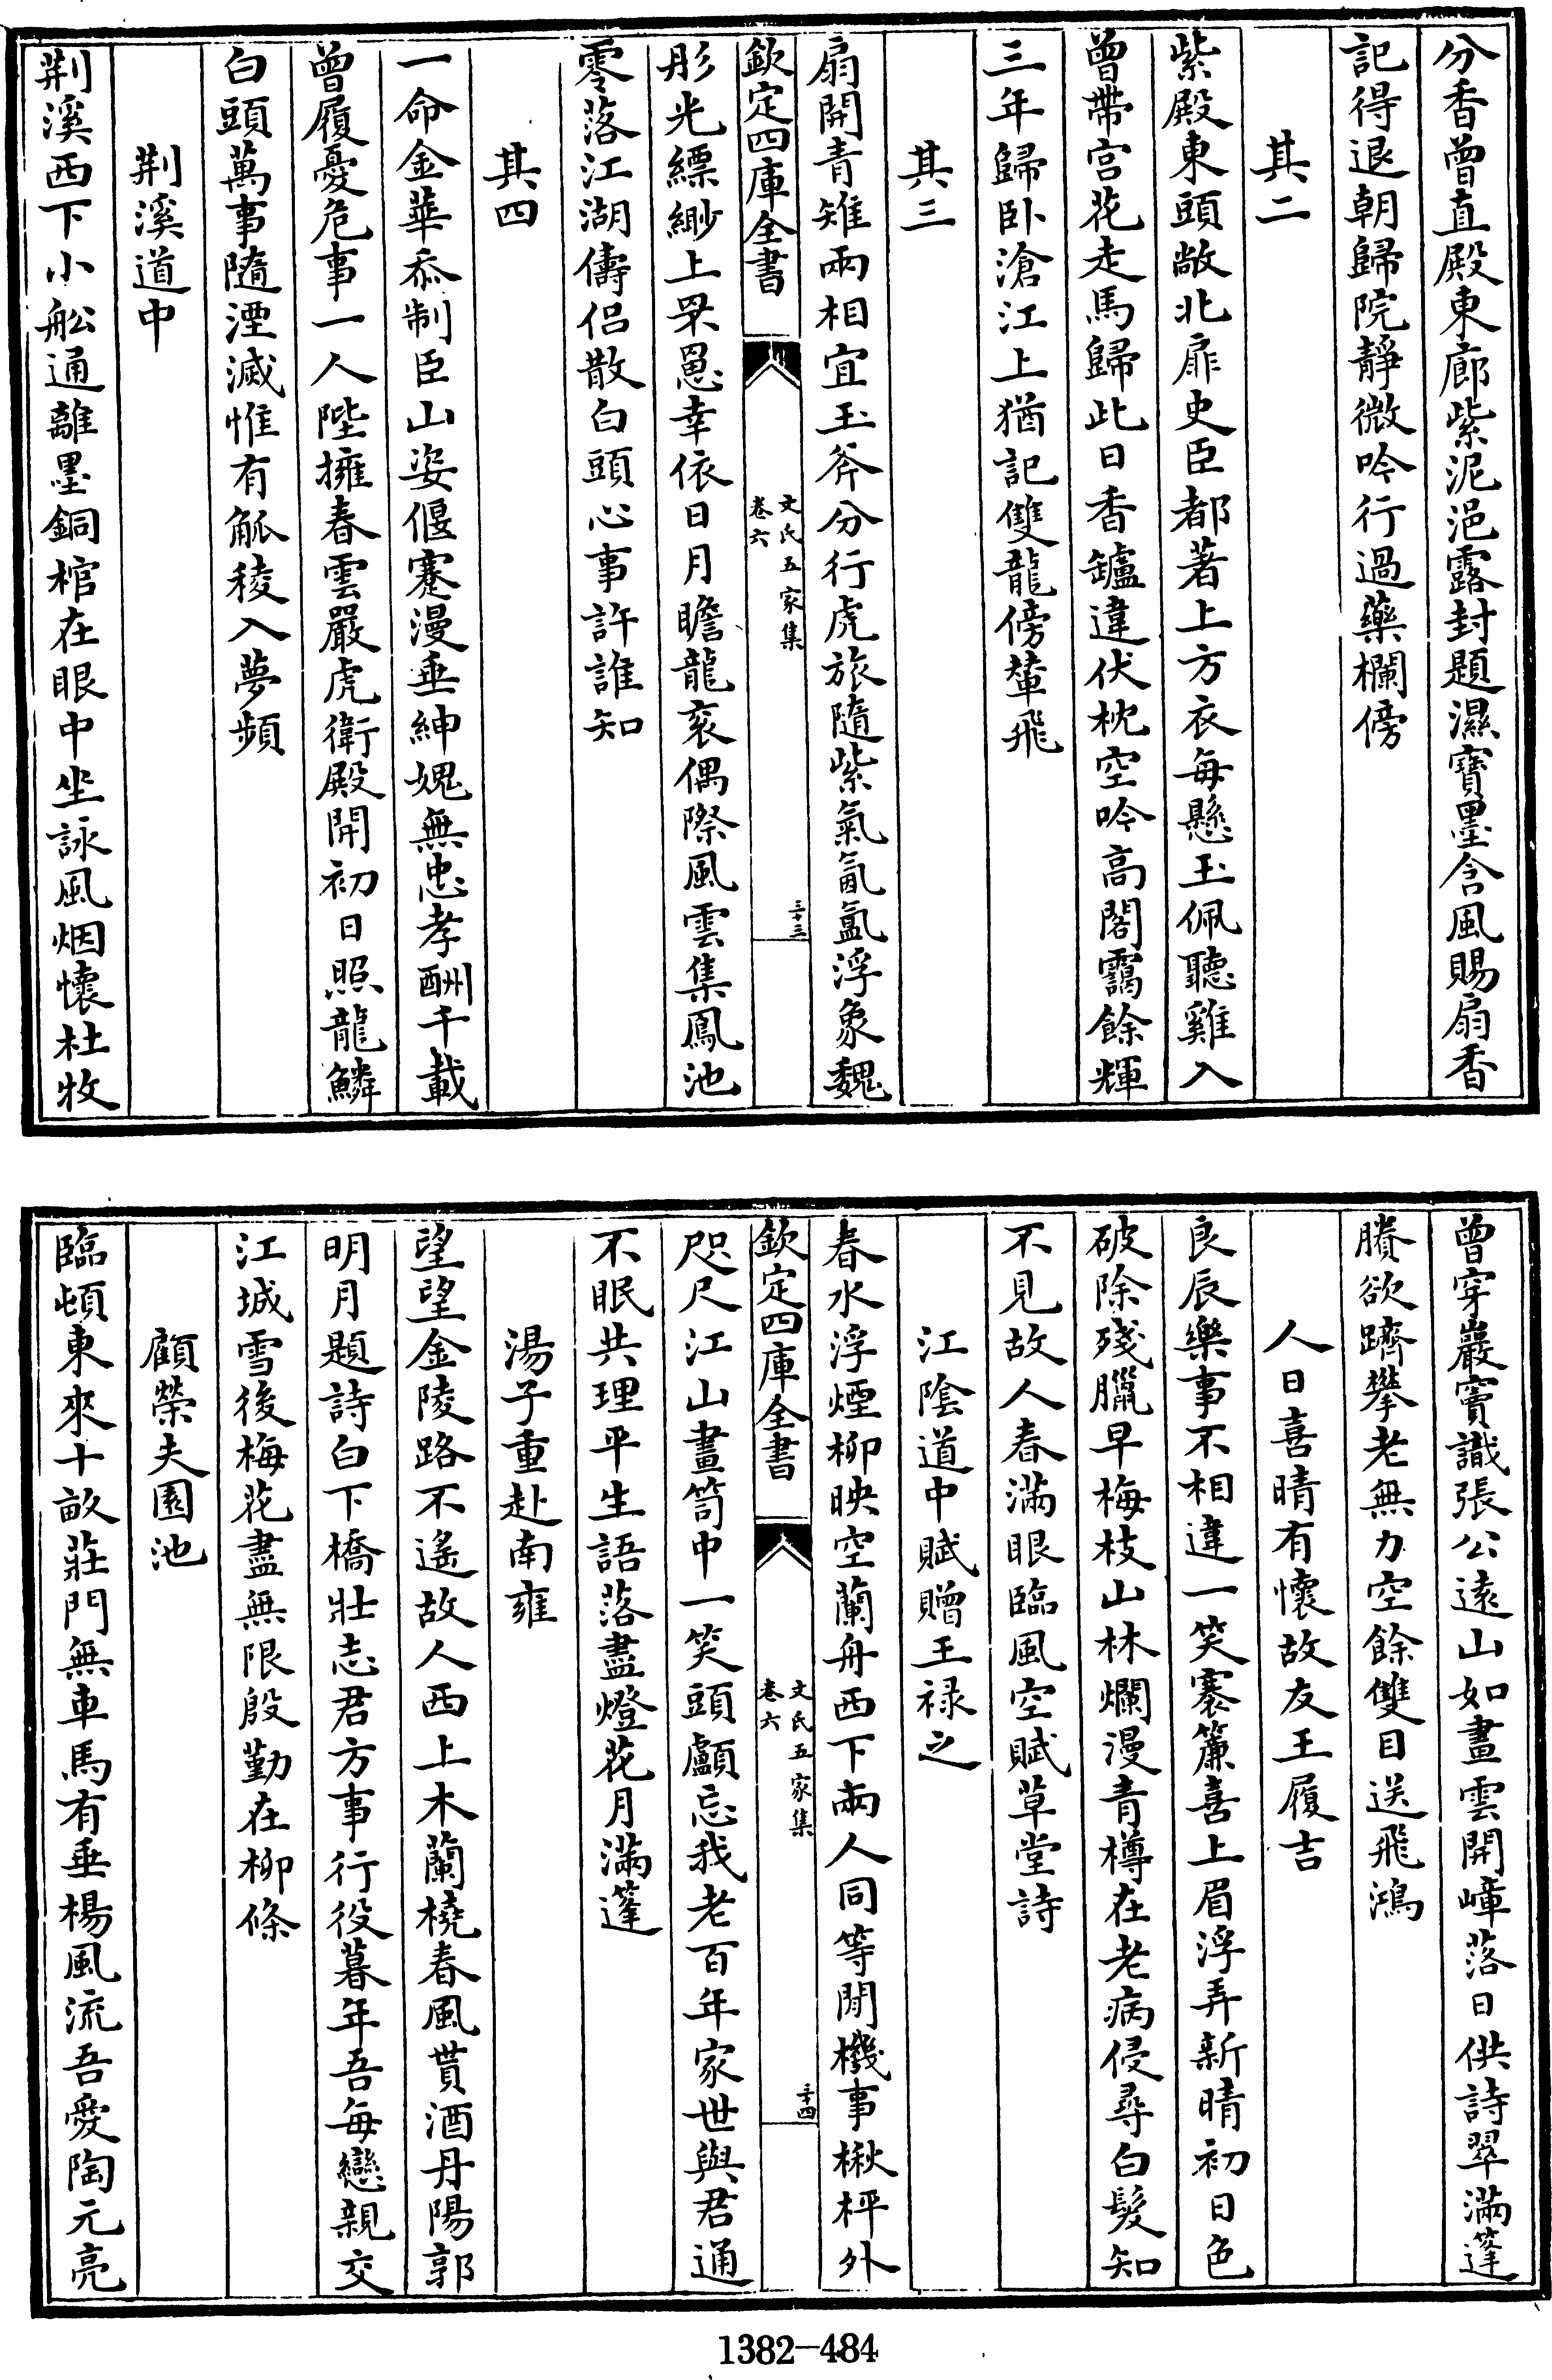 分香曾直殿東廊紫泥浥露封題濕寶墨含風賜扇香
記得退朝歸院靜微吟行過藥欄傍
其二
紫殿東頭敞北扉史臣都著上方衣每懸玉佩聽雞入
曾帶宫花走馬歸此日香鑪違伏枕空吟高閣靄餘輝
三年歸卧滄江上猶記雙龍傍輦飛
其三
扇開青雉兩相宜玉斧分行虎旅隨紫氣氤氲浮象魏
欽定四庫全書
文氏五家集
卷六
三十三
彤光縹緲上罘罳幸依日月瞻龍衮偶際風雲集鳳池
零落江湖儔侣散白頭心事許誰知
其四
一命金華忝制臣山姿偃蹇漫垂紳媿無忠孝酬千載
曾履憂危事一人陛擁春雲嚴虎衛殿開初日照龍鱗
白頭萬事隨湮滅惟有觚稜入夢頻
荆溪道中
荆溪西下小舩通離墨銅棺在眼中坐詠風烟懷杜牧
曾穿巖竇識張公遠山如畫雲開嶂落日供詩翠滿篷
賸欲躋攀老無力空餘雙目送飛鴻
人日喜晴有懷故友王履吉
良辰樂事不相違一笑褰簾喜上眉浮弄新晴初日色
破除殘臘早梅枝山林爛漫青樽在老病侵尋白髮知
不見故人春滿眼臨風空賦草堂詩
江陰道中賦贈王禄之
春水浮煙柳映空蘭舟西下兩人同等閒機事楸枰外
欽定四庫全書
文氏五家集
卷六
三十四
咫尺江山畫笥中一笑頭顱忘我老百年家世與君通
不眠共理平生語落盡燈花月滿篷
湯子重赴南雍
望望金陵路不遙故人西上木蘭橈春風貰酒丹陽郭
明月題詩白下橋壯志君方事行役暮年吾每戀親交
江城雪後梅花盡無限殷勤在柳條
顧榮夫園池
臨頓東來十畝莊門無車馬有垂楊風流吾愛陶元亮
1382—484